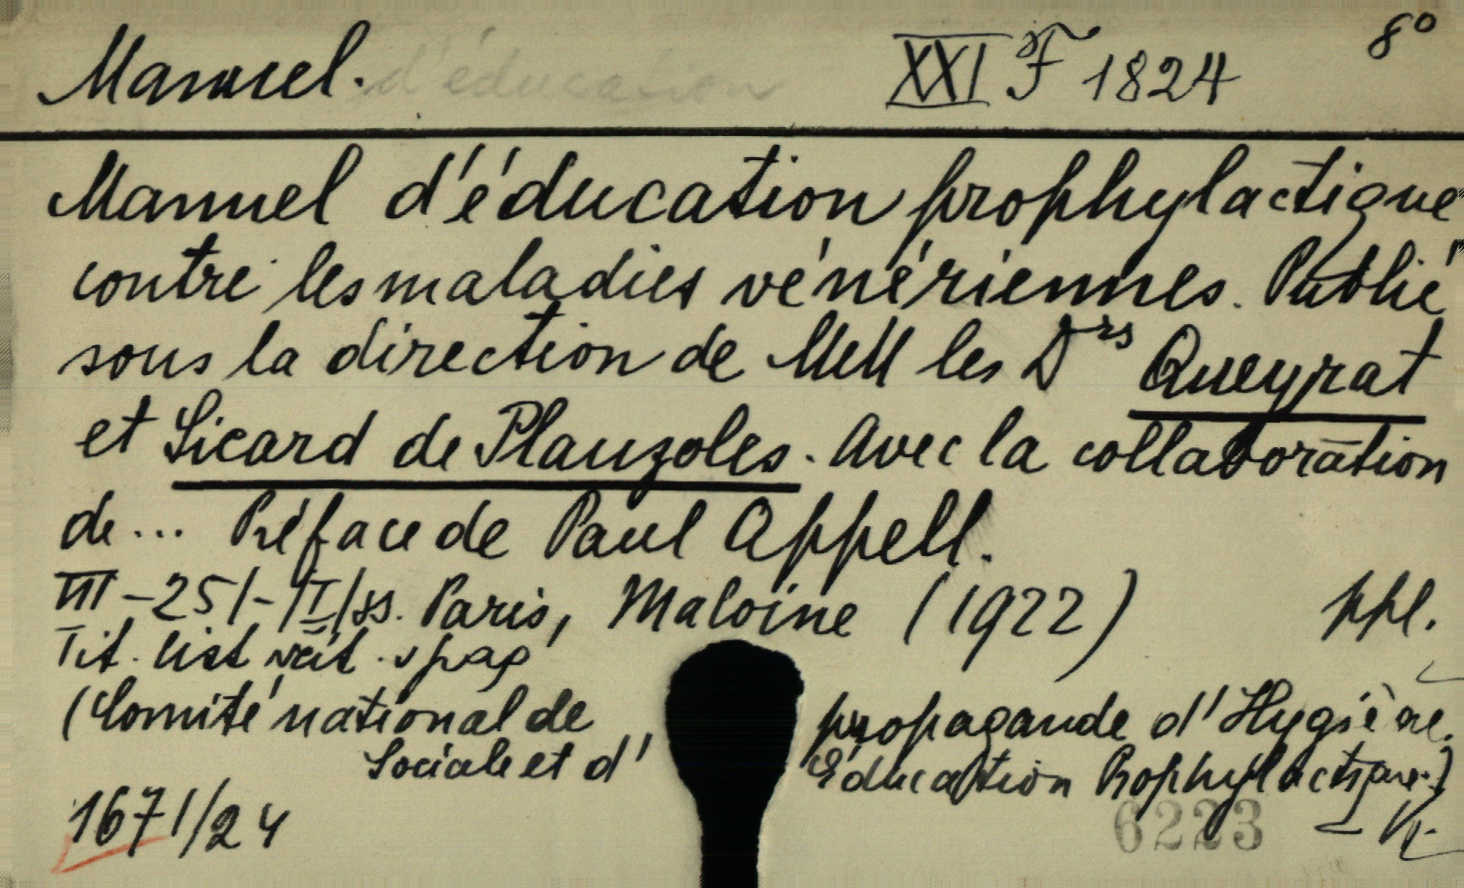 Manuel. d'éducation XXI F 1824 8°
Manuel d'éducation prophylactique
contre les maladies vénériennes. Publié
sous la direction de MM les Drs Queyrat
et Sicard de Plauzoles. Avec la collaboration
de... Préface de Paul Appell.
III-251-/I/ss. Paris, Maloine (1922) ppl.
Tit. list
(Comité national de propagande d'Hygiène
Sociale et d' Éducation Prophylactique.)
1671/24
6223